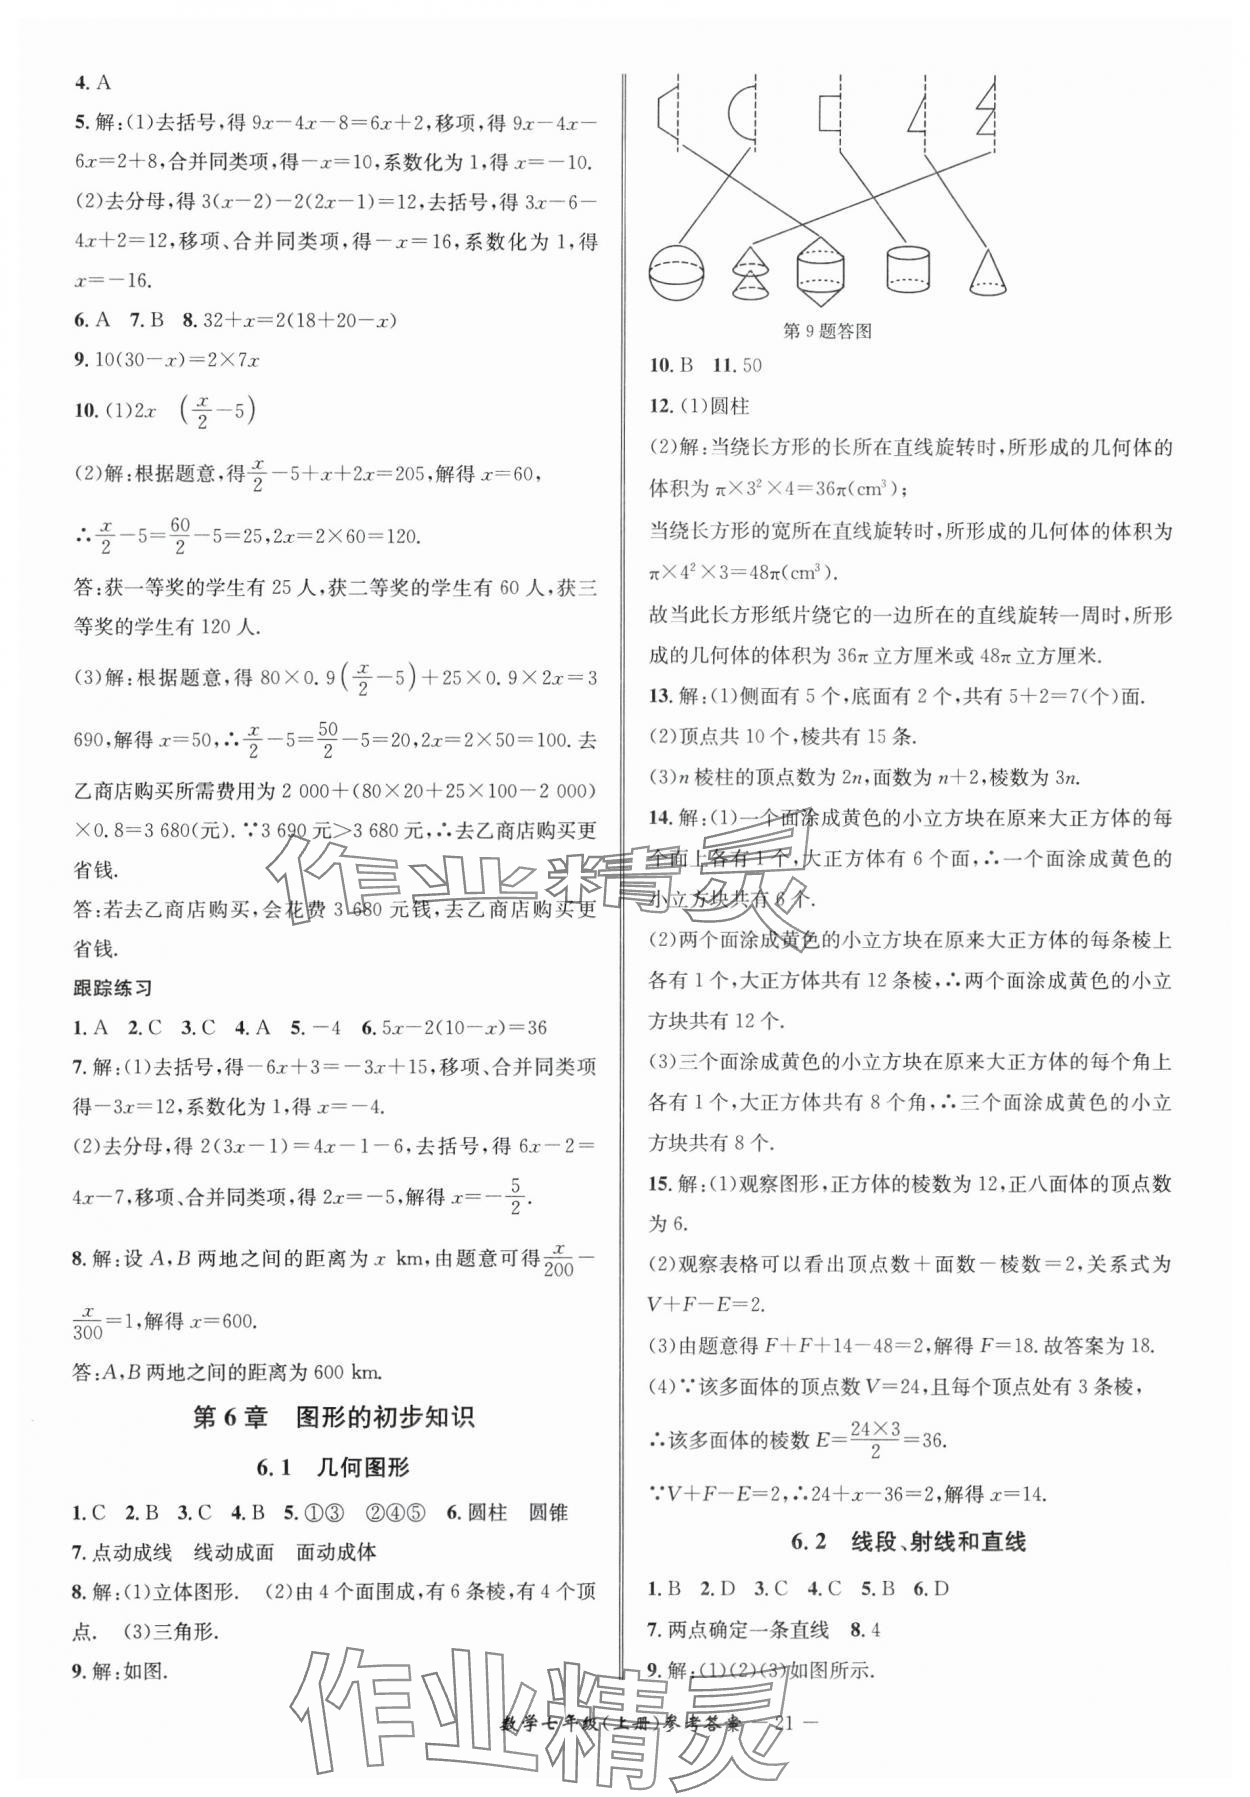 4. A
5. 解:(1)去括号,得 9x-4x-8=6x+2,移项,得 9x-4x-
6x=2+8,合并同类项,得-x=10,系数化为 1,得 x=-10.
(2)去分母,得 3(x-2)-2(2x-1)=12,去括号,得 3x-6-
4x+2=12,移项、合并同类项,得-x=16,系数化为 1,得
x=-16.
6. A 7. B 8. 32+x=2(18+20-x)
9. 10(30-x)=2×7x
10. (1)2x (x/2-5)
(2)解:根据题意,得x/2-5+x+2x=205,解得 x=60,
∴x/2-5=60/2-5=25,2x=2×60=120.
答:获一等奖的学生有 25 人,获二等奖的学生有 60 人,获三
等奖的学生有 120 人.
(3)解:根据题意,得 80×0.9(x/2-5)+25×0.9×2x=3
690,解得 x=50,∴x/2-5=50/2-5=20,2x=2×50=100.去
乙商店购买所需费用为 2 000+(80×20+25×100-2 000)
×0.8=3 680(元).∵3 690 元>3 680 元,∴去乙商店购买更
省钱.
答:若去乙商店购买,会花费 3 680 元钱,去乙商店购买更
省钱.
跟踪练习
1. A 2. C 3. C 4. A 5. -4 6. 5x-2(10-x)=36
7. 解:(1)去括号,得-6x+3=-3x+15,移项、合并同类项
得-3x=12,系数化为 1,得 x=-4.
(2)去分母,得 2(3x-1)=4x-1-6,去括号,得 6x-2=
4x-7,移项、合并同类项,得 2x=-5,解得 x=-5/2.
8. 解:设 A,B 两地之间的距离为 x km,由题意可得x/200-
x/300=1,解得 x=600.
答:A,B 两地之间的距离为 600 km.
第 6 章 图形的初步知识
6.1 几何图形
1. C 2. B 3. C 4. B 5. ①③ ②④⑤ 6. 圆柱 圆锥
7. 点动成线 线动成面 面动成体
8. 解:(1)立体图形. (2)由 4 个面围成,有 6 条棱,有 4 个顶
点. (3)三角形.
9. 解:如图.
第 9 题答图
10. B 11. 50
12. (1)圆柱
(2)解:当绕长方形的长所在直线旋转时,所形成的几何体的
体积为 π×3²×4=36π(cm³);
当绕长方形的宽所在直线旋转时,所形成的几何体的体积为
π×4²×3=48π(cm³).
故当此长方形纸片绕它的一边所在的直线旋转一周时,所形
成的几何体的体积为 36π 立方厘米或 48π 立方厘米.
13. 解:(1)侧面有 5 个,底面有 2 个,共有 5+2=7(个)面.
(2)顶点共 10 个,棱共有 15 条.
(3)n 棱柱的顶点数为 2n,面数为 n+2,棱数为 3n.
14. 解:(1)一个面涂成黄色的小立方块在原来大正方体的每
个面上各有 1 个,大正方体有 6 个面,∴一个面涂成黄色的
小立方块共有 6 个.
(2)两个面涂成黄色的小立方块在原来大正方体的每条棱上
各有 1 个,大正方体共有 12 条棱,∴两个面涂成黄色的小立
方块共有 12 个.
(3)三个面涂成黄色的小立方块在原来大正方体的每个角上
各有 1 个,大正方体共有 8 个角,∴三个面涂成黄色的小立
方块共有 8 个.
15. 解:(1)观察图形,正方体的棱数为 12,正八面体的顶点数
为 6.
(2)观察表格可以看出顶点数+面数-棱数=2,关系式为
V+F-E=2.
(3)由题意得 F+F+14-48=2,解得 F=18.故答案为 18.
(4)∵该多面体的顶点数 V=24,且每个顶点处有 3 条棱,
∴该多面体的棱数 E=24×3/2=36.
∵V+F-E=2,∴24+x-36=2,解得 x=14.
6.2 线段、射线和直线
1. B 2. D 3. C 4. C 5. B 6. D
7. 两点确定一条直线 8. 4
9. 解:(1)(2)(3)如图所示.
数学七年级(上册)参考答案 — 21 —
作业精灵
作业精灵